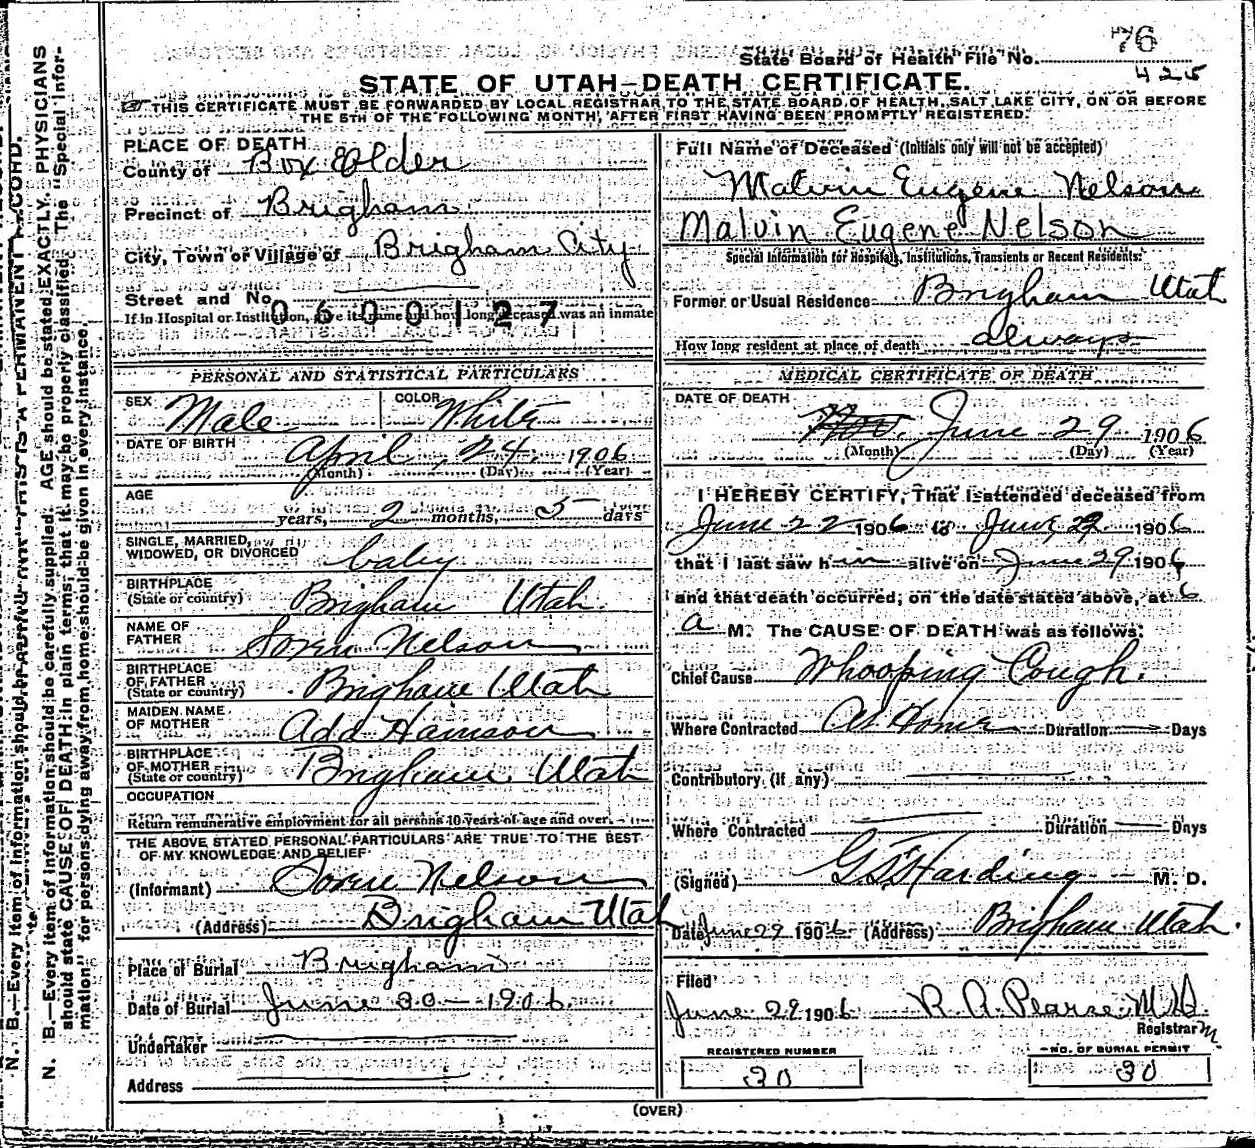 76
State Board of Health File No.
425
STATE OF UTAH—DEATH CERTIFICATE.
THIS CERTIFICATE MUST BE FORWARDED BY LOCAL REGISTRAR TO THE STATE BOARD OF HEALTH, SALT LAKE CITY, ON OR BEFORE
THE 5TH OF THE FOLLOWING MONTH, AFTER FIRST HAVING BEEN PROMPTLY REGISTERED.
PLACE OF DEATH
County of Box Elder
Precinct of Brigham
City, Town or Village of Brigham City
Street and No.
0600127
If in Hospital or Institution, give its name and how long deceased was an inmate
PERSONAL AND STATISTICAL PARTICULARS
SEX Male COLOR White
DATE OF BIRTH April, 24 1906
(Month) (Day) (Year)
AGE
years, 2 months, 5 days
SINGLE, MARRIED,
WIDOWED, OR DIVORCED baby
BIRTHPLACE
(State or country) Brigham Utah.
NAME OF
FATHER Soren Nelson
BIRTHPLACE
OF FATHER
(State or country) Brigham Utah
MAIDEN NAME
OF MOTHER Add
BIRTHPLACE
OF MOTHER
(State or country) Brigham Utah
OCCUPATION
Return remunerative employment for all persons 10 years of age and over.
THE ABOVE STATED PERSONAL PARTICULARS ARE TRUE TO THE BEST
OF MY KNOWLEDGE AND BELIEF
(Informant) Soren Nelson
(Address) Brigham Utah
Place of Burial Brigham
Date of Burial June 30 - 1906
Undertaker
Address
Full Name of Deceased (Initials only will not be accepted)
Malvin Eugene Nelson
Malvin Eugene Nelson
Special Information for Hospitals, Institutions, Transients or Recent Residents:
Former or Usual Residence Brigham Utah
How long resident at place of death always
MEDICAL CERTIFICATE OF DEATH
DATE OF DEATH
June 29 1906
(Month) (Day) (Year)
I HEREBY CERTIFY, That I attended deceased from
June 22 1906 to June 29 1906
that I last saw him alive on June 29 1906
and that death occurred, on the date stated above, at 6
a M. The CAUSE OF DEATH was as follows:
Chief Cause Whooping Cough.
Where Contracted At Home Duration Days
Contributory (if any)
Where Contracted Duration Days
(Signed) Harding M. D.
Date June 29 1906 (Address) Brigham Utah.
Filed
June 29 1906 R. A. Pearse, M.D.
Registrar
REGISTERED NUMBER
30
NO. OF BURIAL PERMIT
30
(OVER)
N. B.—Every item of information should be carefully supplied. AGE should be stated EXACTLY. PHYSICIANS
should state CAUSE OF DEATH in plain terms, that it may be properly classified. The "Special Infor-
mation" for persons dying away from home should be given in every instance.